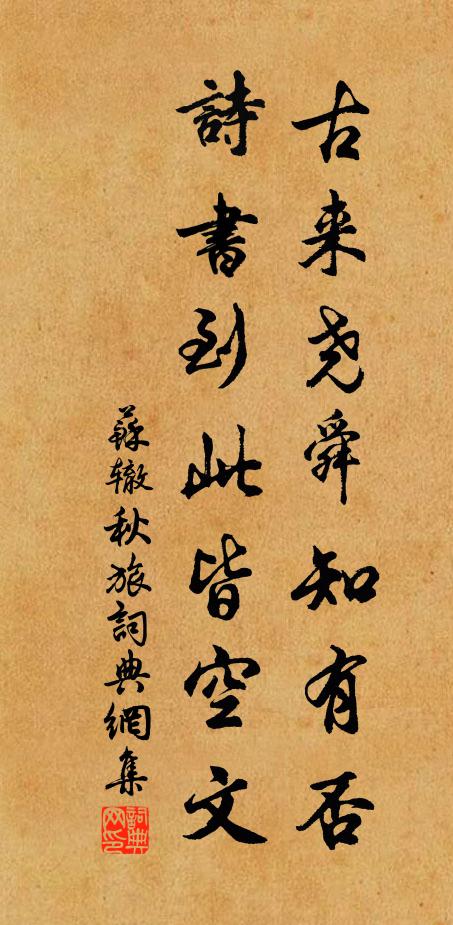 古来尧舜知有否
詩書到此皆空文
蘇辙秋旅詞典網集
詞典网印